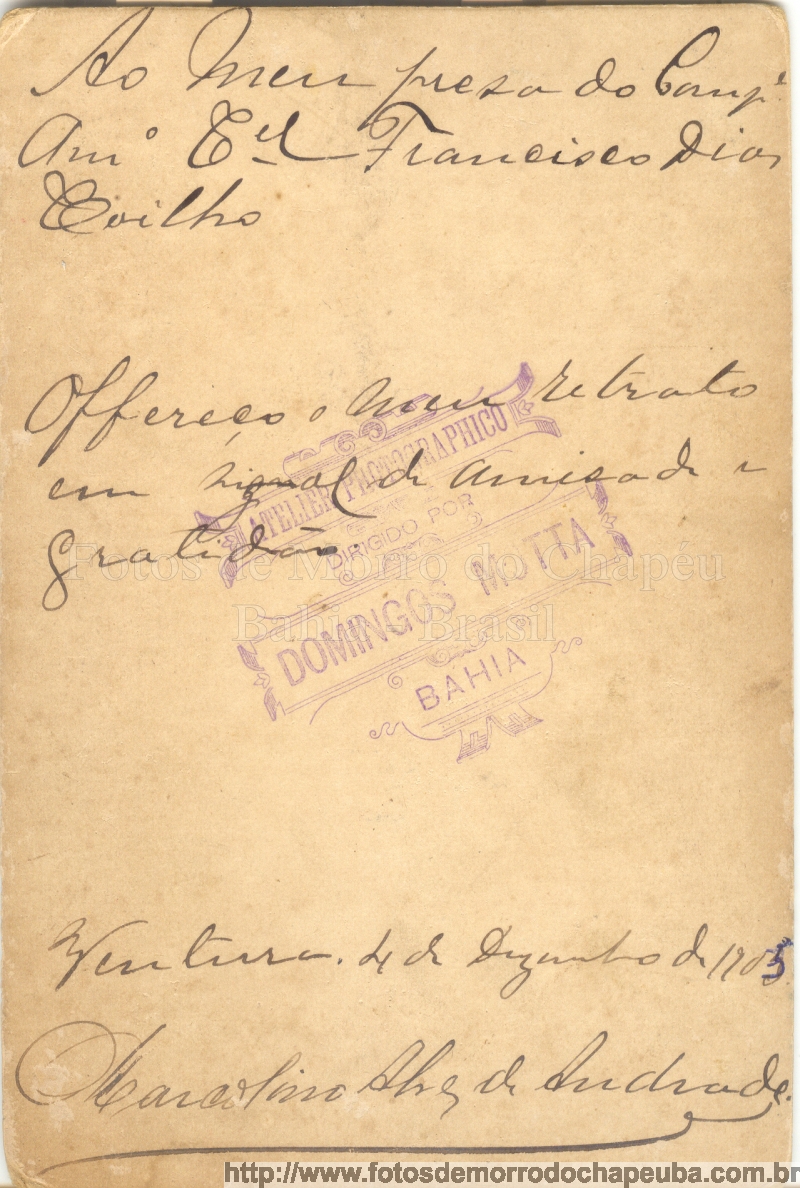 Ao Meu presado Comp.e
Am.o Cel Francisco Dias
Coilho
Offereço o meu retrato
em signal de amisade e
gratidão.
ATELIER PHOTOGRAPHICO
DIRIGIDO POR
DOMINGOS MOTTA
BAHIA
Fotos de Morro do Chapéu
Bahia - Brasil
Ventura. 4 de Dezembro de 1905
Marcolino Alvz de Andrade.
http://www.fotosdemorrodochapeuba.com.br